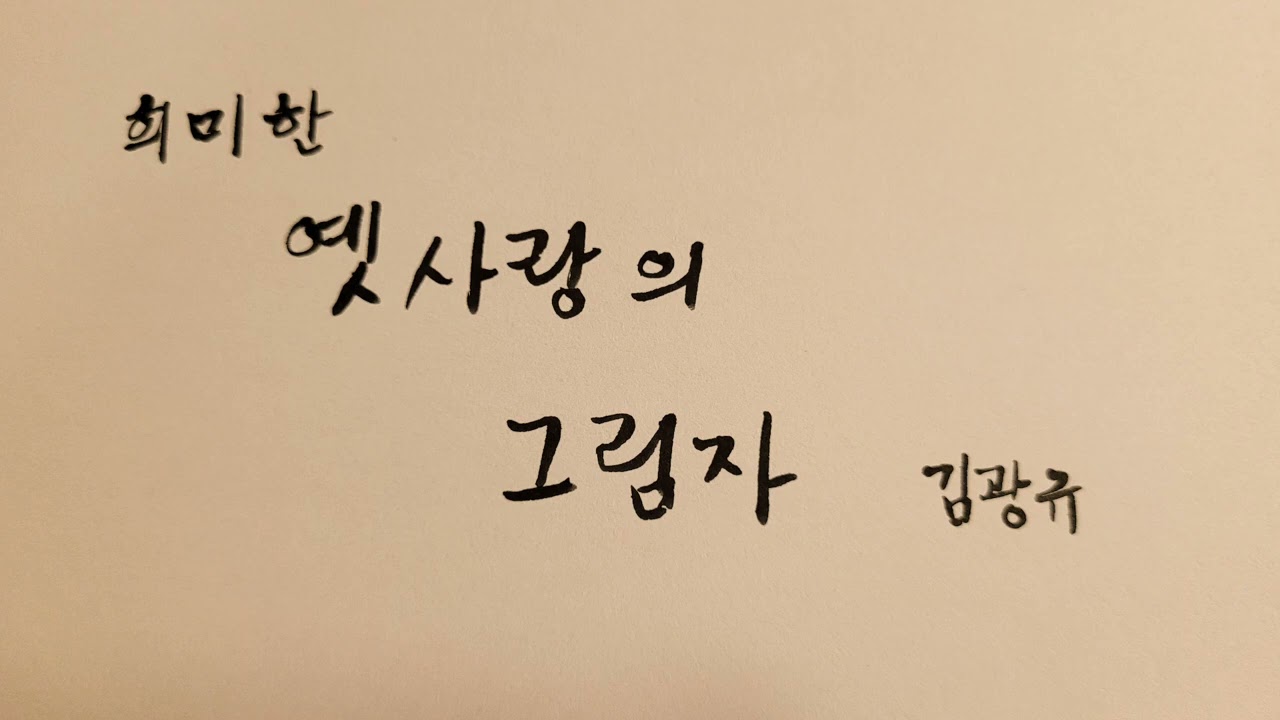 희미한
옛사랑의
그림자 김광규